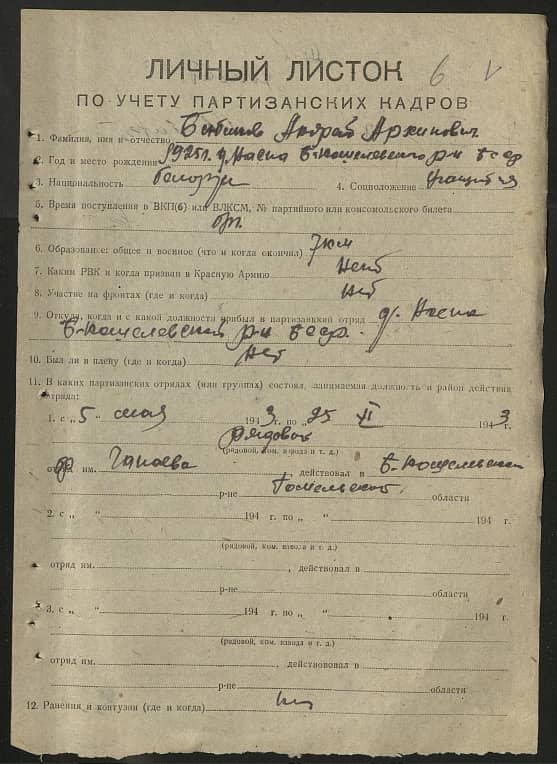 6 V
ЛИЧНЫЙ ЛИСТОК
ПО УЧЕТУ ПАРТИЗАНСКИХ КАДРОВ
1. Фамилия, имя и отчество Андрей Архипович
2. Год и место рождения 1925 г. д. Б-Кошелевского р-н БССР
3. Национальность белорус 4. Соцположение учащийся
5. Время поступления в ВКП(б) или ВЛКСМ, № партийного или комсомольского билета
б/п.
6. Образование: общее и военное (что и когда окончил) 7 кл
7. Каким РВК и когда призван в Красную Армию Нет
8. Участие на фронтах (где и когда) Нет
9. Откуда, когда и с какой должности прибыл в партизанский отряд д.
Б-Кошелевский р-н БССР.
10. Был ли в плену (где и когда) Нет
11. В каких партизанских отрядах (или группах) состоял, занимаемая должность и район действия
отряда:
1. с „ 5 “ мая 1943 г. по „ 25 “ XI 1943
рядовой
(рядовой, ком. взвода и т. д.)
отряд им. Чапаева, действовал в Б-Кошелевский
р-не Гомельской области
2. с „ “ 194 г. по „ “ 194 г.
(рядовой, ком. взвода и т. д.)
отряд им. , действовал в
р-не области
3. с „ “ 194 г. по „ “ 194 г.
(рядовой, ком. взвода и т. д.)
отряд им. , действовал в
р-не области
12. Ранения и контузии (где и когда) нет